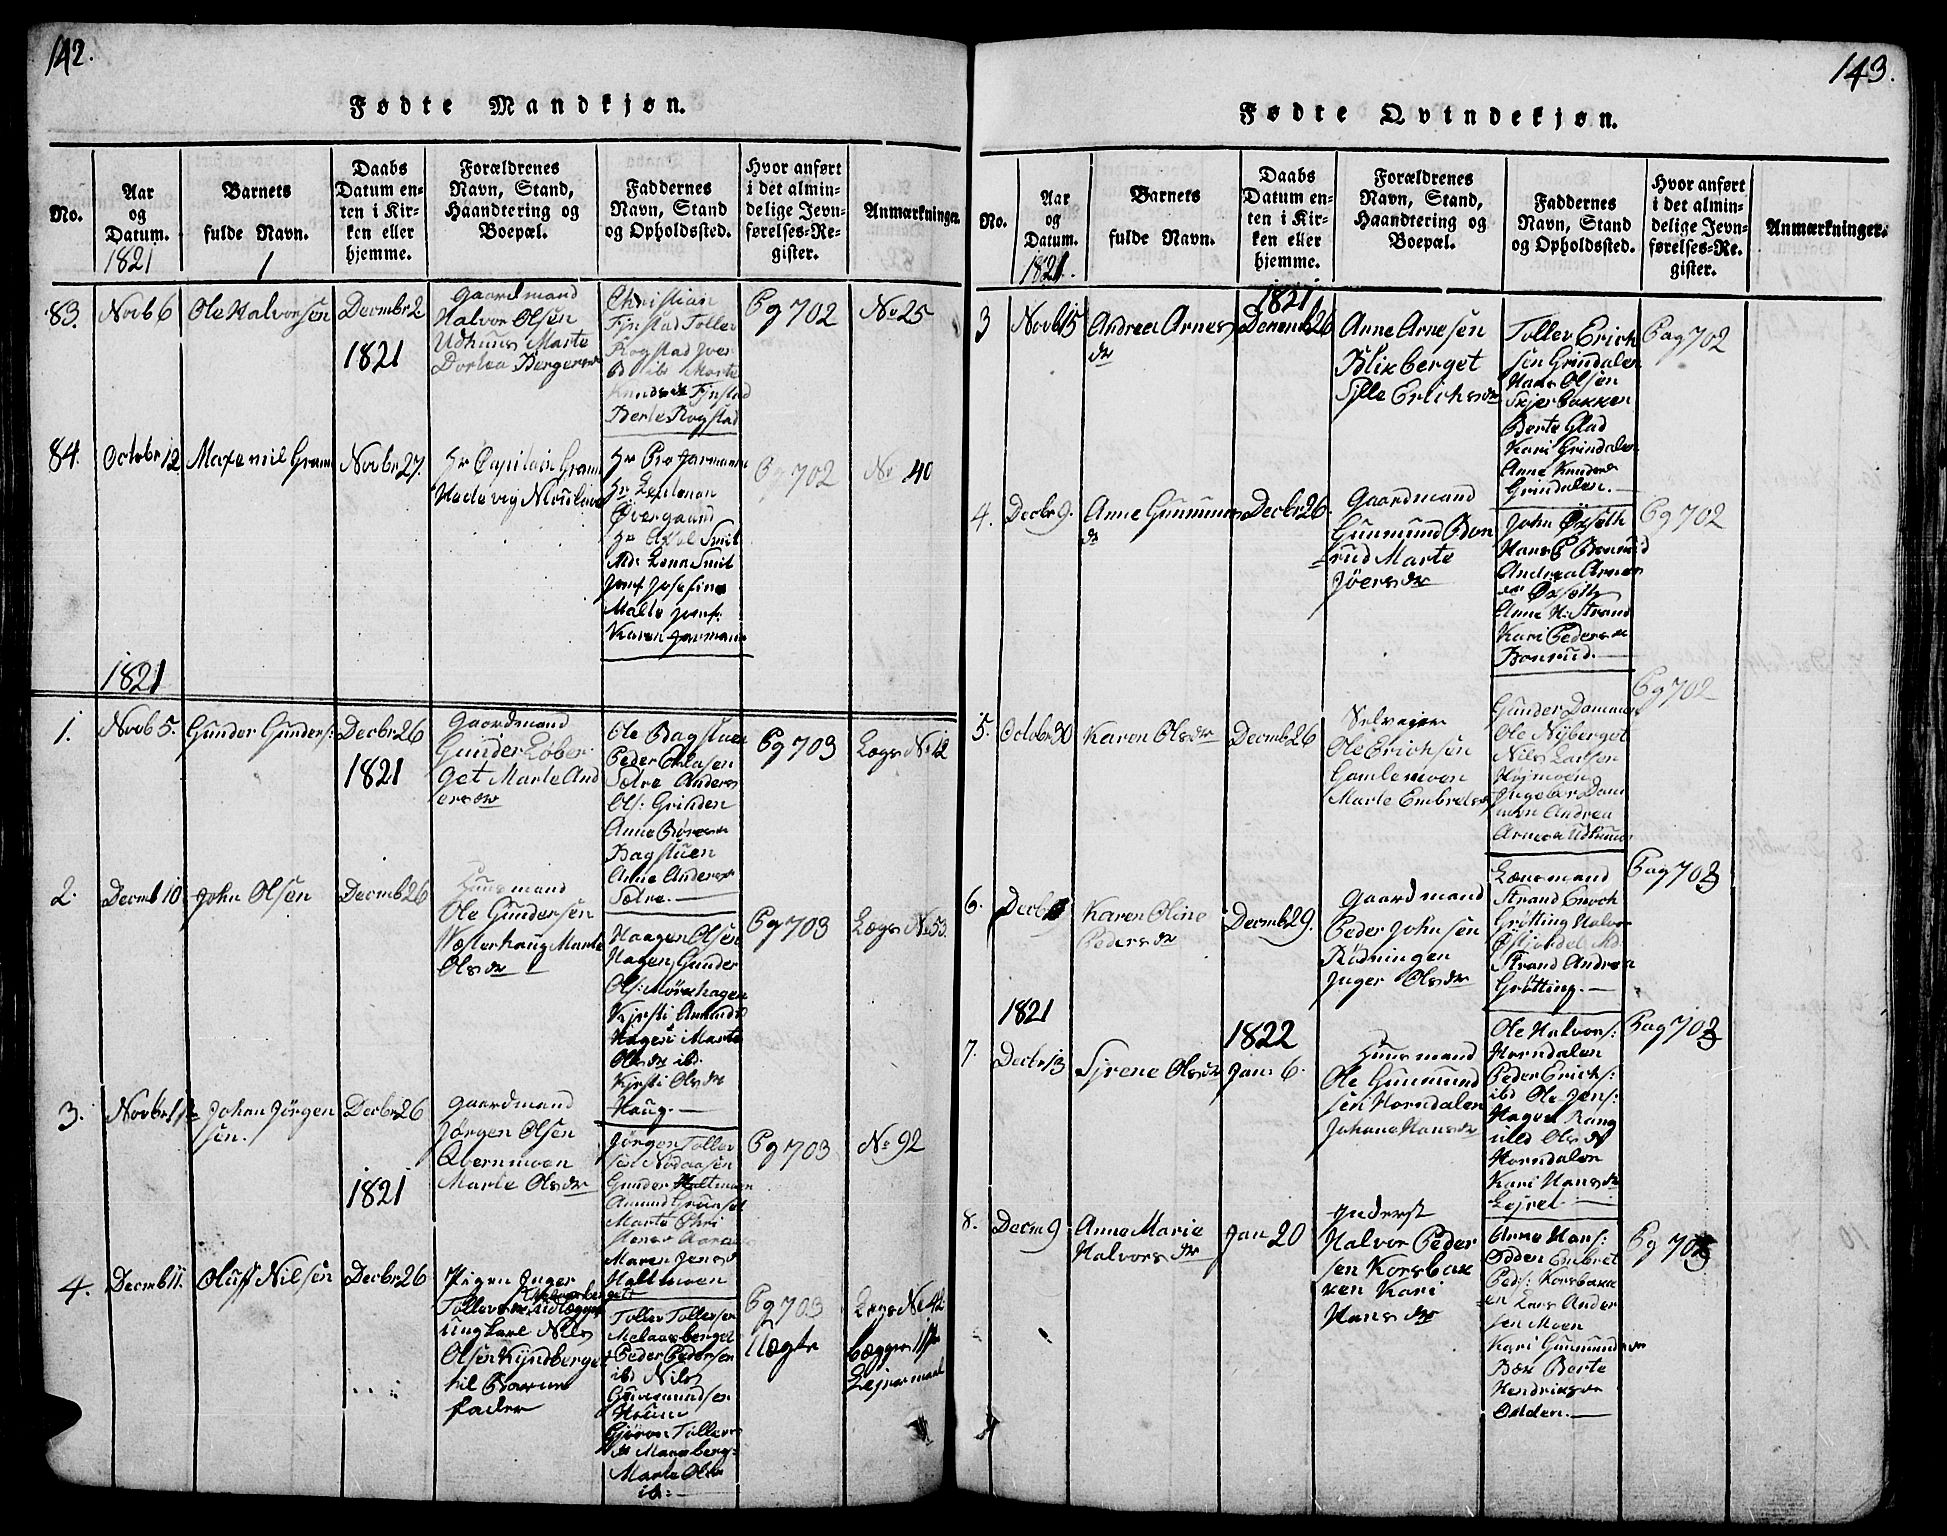 142.
Fødte Mandkjøn.
No.
Aar
og
Datum.
1821
Barnets
fulde Navn.
Daabs
Datum en-
ten i Kir-
ken eller
hjemme.
Forældrenes
Navn, Stand,
Haandtering og
Boepæl.
Faddernes
Navn, Stand
og Opholdssted.
Hvor anført
i det almin-
delige Jevn-
førelses-Re-
gister.
Anmærkninger.
83.
Novb 6
Ole Halvorsen
Decmbr 2
1821
Gaardmand
Halvor Olsen
Udhuus Marte
Dorthea
Christian
Fjnstad Toller
Rogstad Iver
Marte
Fjnstad
Berte Rogstad
Pg 702
No 25
84.
Octobr 12
Gram
Novbr 27.
Hr Capitain Gram
Hr
Hr
Øvergaard
Hr Axel Smit
Md: Lena Smit
Jomf Josefine
Malte Jomf:
Karen
Pg 702
No 40
1821
1.
Novb 5.
Gunder Gunders:
Decbr 26
1821
Gaardmand
Gunder Løber-
get Marte And
ersdr
Ole Bagstuen
Peder
Sætre Anders
Ols: Grinden
Anne
Bagstuen
Anne Andersdr
Sætre.
Pg 703
Lægs No 12
2.
Decmb 10
John Olsen
Decmb 26
Huusmand
Ole Gundersen
Westerhaug Marte
Olsdr
Haagen Olsen
Hagen Gunder
Ols: Mørchagen
Kjersti Amunds
Hagen Marte
Olsdr ibd.
Kjersti Olsdr
Haug.
Pg 703
Lægs No 53.
3.
Novbr 12
Johan Jörgen
sen.
Decbr 26
1821
Gaardmand
Jörgen Olsen
Qvernmoen
Marte Olsdr
Jörgen Toller
sen
Gunder Holtmoen
Amund Grønset
Marte Chri
Maren Jensd
Holtmoen
Pg 703
No 92
4.
Decmb 11.
Oluff Nilsen
Decbr 26
Pigen Inger
Tollevs
ungkarl Nils
Olsen Kyndberget
til Barne
fader
Toller Tollersen
Peder Pedersen
ibd Nils
Gunmundsen
Marte Ols
ib:
Pg 703
Uægte
Lægs No 42
Leiermaal
143.
Fødte Qvindekjøn.
No.
Aar
og
Datum.
1821.
Barnets
fulde Navn.
Daabs
Datum en-
ten i Kir-
ken eller
hjemme.
1821
Forældrenes
Navn, Stand,
Haandtering og
Boepæl.
Faddernes
Navn, Stand
og Opholdssted.
Hvor anført
i det almin-
delige Jevn-
førelses-Re-
gister.
Anmærkninger.
3
Novb 15
Andrea Arnes
dr
Decmb 26
Arne Arnesen
Blixberget
Sille Erichsdr
Toller Erich
sen Grindalen
Hans Olsen
Skjerbakken
Berte Glad
Kari Grindalen
Anne Knudsdr
Grindalen.
Pag 702
4.
Decbr 9.
Anne Gunmuns
dr
Decbr 26.
Gaardmand
Gunmund Bon
rud Marte
Iversdr
John Øxseth
Hans P Bonrud
Andrea Arnes
dr Øxseth
Anne H: Strand
Kari Pedersdr
Bonrud.
Pg 702
5.
Octobr 30
Karen Olsdr
Decmb 26
Selveyer
Ole Erichsen
Gamlemoen
Marte Embretsd
Gunder Dammen
Ole Nyberget
Nils Larsen
Højmoen
Ingebor Dam
men Andrea
Arnesdr Udhuus
Pg 702
6.
Decbr 9
Karen Oline
Pedersdr
Decmb 29.
Gaardmand
Peder Johnsen
Rødningen
Inger Olsdr
Lænsmand
Strand Enoch
Grøtting Halvor
Md:
Strand Andrea
Grøtting.
Pag 703
1821
7.
Decbr 13
Syrene Olsdr
1822
Jan: 6.
Huusmand
Ole Gunmund
sen Horndalen
Johane Hansdr
Ole Halvors:
Horndalen
Peder Erichs:
ibd Ole Jens:
Hagen Rang
nild Olsdr
Horndalen
Kari Hansdr
Lejret
Pag 703
8.
Decm 9
Anne Marie
Halvorsdr
Jan 20
Inderst
Halvor Peder
sen Korsbak
ken Kari
Hansdr
Arne Hans:
Odden Embret
Peds: Korsbakk
en Lars Ander
sen Moen
Kari Gunmundsdr
Bæk Berte
Hendriksdr
Odden.
Pg 703